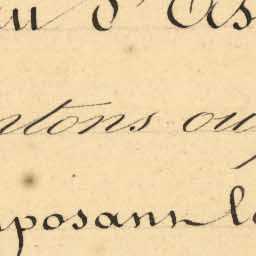 au d'As
ntons ou
mposant le